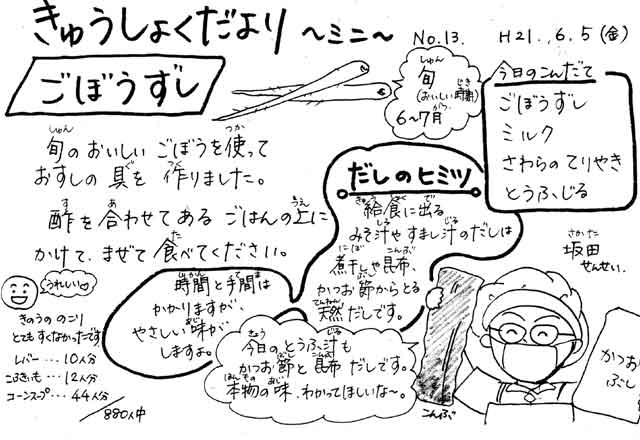 きゅうしょくだより ～ミニ～ No.13. H21. 6.5 (金)
ごぼうずし
旬のおいしい ごぼうを使って
おすしの 具を 作りました。
酢を合わせてある ごはんの上に
かけて、まぜて食べてください。
旬
(おいしい時期)
6～7月
今日のこんだて
ごぼうずし
ミルク
さわらのてりやき
とうふじる
だしのヒミツ
給食に出る
みそ汁や すまし汁のだしは
煮干しや昆布、
かつお節からとる
天然だしです。
時間と手間は
かかりますが、
やさしい味が
しますよ。
今日の とうふ汁も
かつお節と昆布だしです。
本物の味、わかってほしいな～。
坂田
せんせい。
うれしい♡
きのうの のこり
とても すくなかったです
レバー … 10人分
こふきいも … 12人分
コーンスープ … 44人分
/880人中
こんぶ
かつお
ぶし